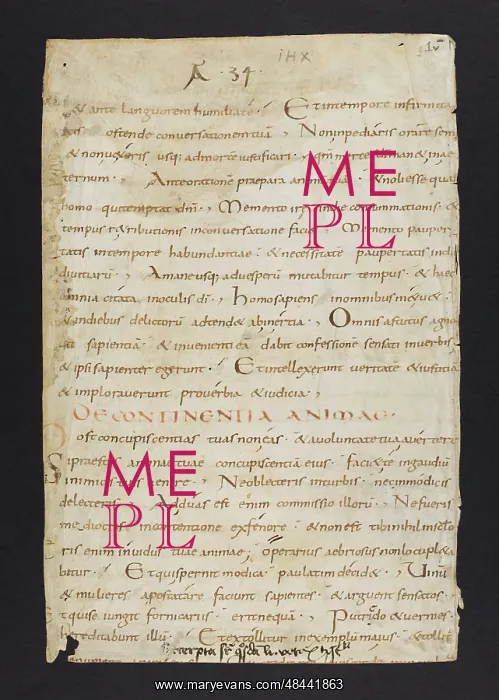 IHX
A · 34 ·
& ante languorem humiliate · Et in tempore infirmita
ostende conuersationem tuā , Non impediaris orare sem
& non usq; ad mortē iustificari · qm̄ merces manet in ae
ternum · Ante orationē praepara animā & noli esse qua
homo qui temptat dm̄ · , Memento irae in die consummationis · &
tempus r&ributionis in conuersatione faciei Memento pauper
tatis in tempore habundantiae · & necessitatē paupertatis in die
diuitiarū , A mane usq; ad uesperū mutabitur tempus · & haec
omnia citata in oculis dī · , homo sapiens in omnibus m&u& ·
& in diebus delictorū adtend& ab inertia · , Omnis astutus agnos
cit sapientiā · & inuenienti eā dabit confessionē sensati in uerbis
& ipsi sapienter egerunt · Et intellexerunt ueritatē & iustitiā
& imploraverunt prouerbia & iudicia ,
DE CONTINENTIA ANIMAE ·
Post concupiscentias tuas non eas · & a uoluntate tua auertere
Si praestes animae tuae concupiscentiā eius · faciet te in gaudiū
inimicis tuis uenire · Ne oblecteris in turbis · nec in modicis
delecteris Adsidua est enim commissio illorū · Ne fueris
mediocris in contentione ex fenore · & non est tibi nihil in sacculo
eris enim inuidus tuae animae ; operarius aebriosus non locupl&a
bitur · Et qui spernit modica · paulatim decid& · , Uinū
& mulieres apostatare faciunt sapientes · & arguent sensatos ·
& qui se iungit fornicariis · erit nequā · , Putredo & uermes ·
hereditabunt illū · Et extollitur in exemplū maius · & tollet
MEPL
MEPL
www.maryevans.com/48441863